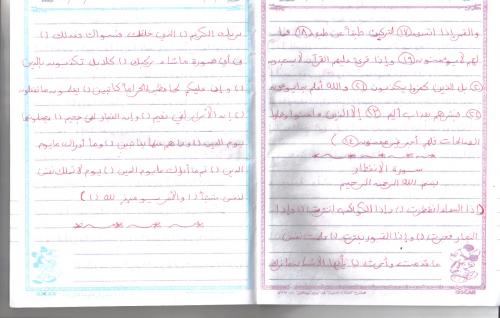 والقمر إذا اتسق (١٧) لتركبن طبقا عن طبق (١٨) فما
لهم لا يؤمنون وإذا قرئ عليهم القرآن لا يسجدون
بل الذين كفروا يكذبون والله أعلم بما يوعون
فبشرهم بعذاب أليم إلا الذين ءامنوا وعملوا
الصالحات فلهم أجر غير ممنون
سورة الانفطار
بسم الله الرحمن الرحيم
إذا السماء انفطرت () وإذا الكواكب انتثرت () وإذا
البحار فجرت () وإذا القبور بعثرت () علمت نفس
ما قدمت وأخرت () يأيها الإنسان ما غرك
بربك الكريم () الذي خلقك فسواك فعدلك ()
في أي صورة ما شاء ركبك () كلا بل تكذبون بالدين
() وإن عليكم لحافظين () كراما كاتبين () يعلمون ما تفعلون
() إن الأبرار لفي نعيم () وإن الفجار لفي جحيم () يصلونها
يوم الدين () وما هم عنها بغائبين () وما أدراك ما يوم
الدين () ثم ما أدراك ما يوم الدين () يوم لا تملك نفس
لنفس شيئا والأمر يومئذ لله ()